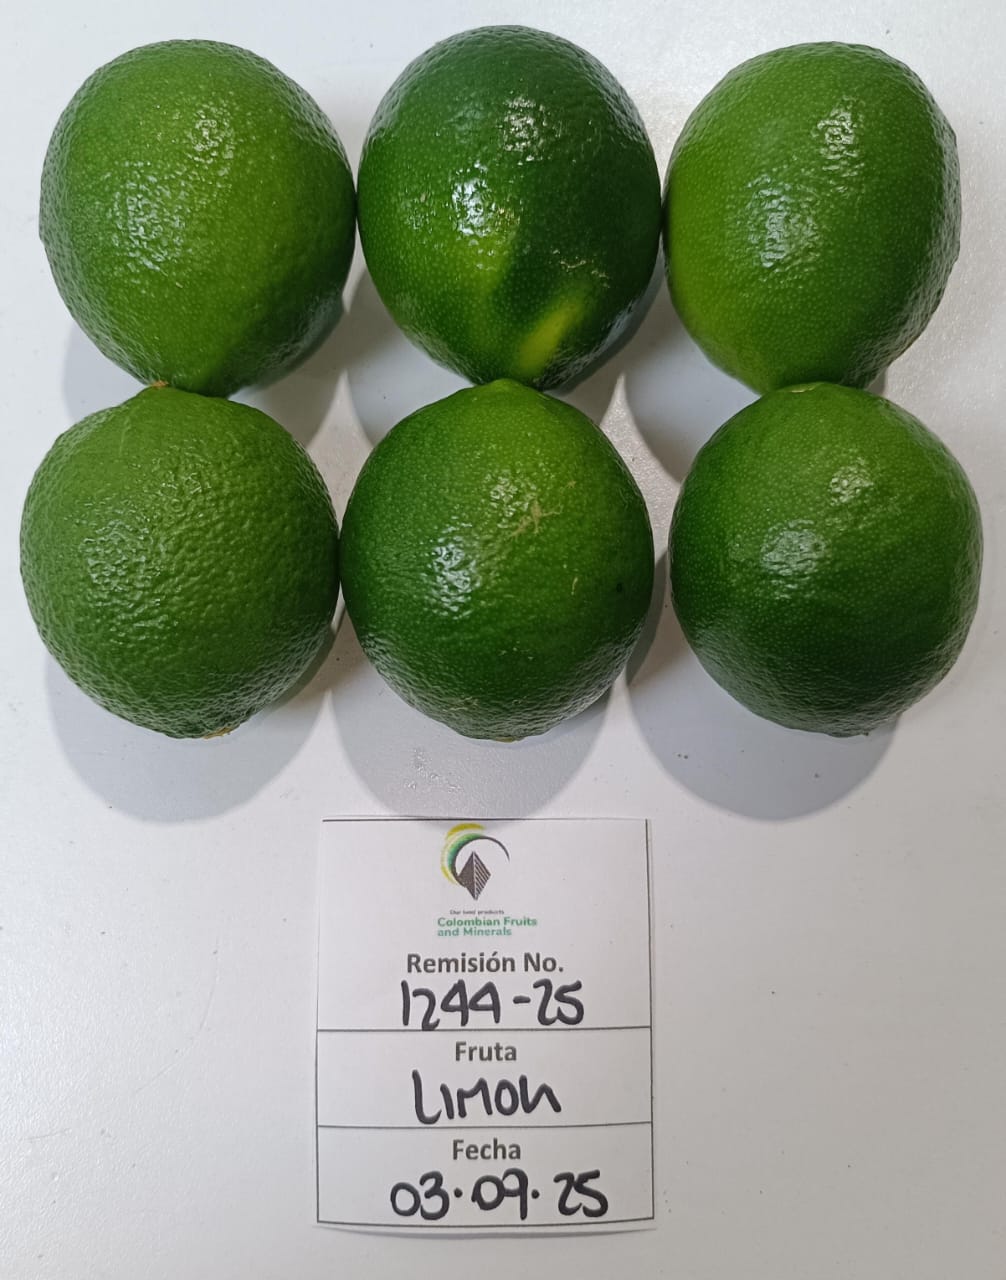 Our best products
Colombian Fruits
and Minerals
Remisión No.
1244-25
Fruta
LIMON
Fecha
03.09.25